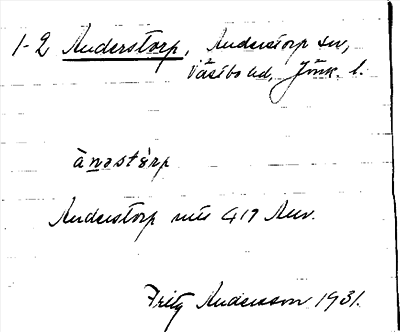 1-2 Anderstorp, Anderstorp sn,
Västbo hd, Jönk. l.
ànəstòrp
Anderstorp 417 Anv.
Fritz Andersson 1931.